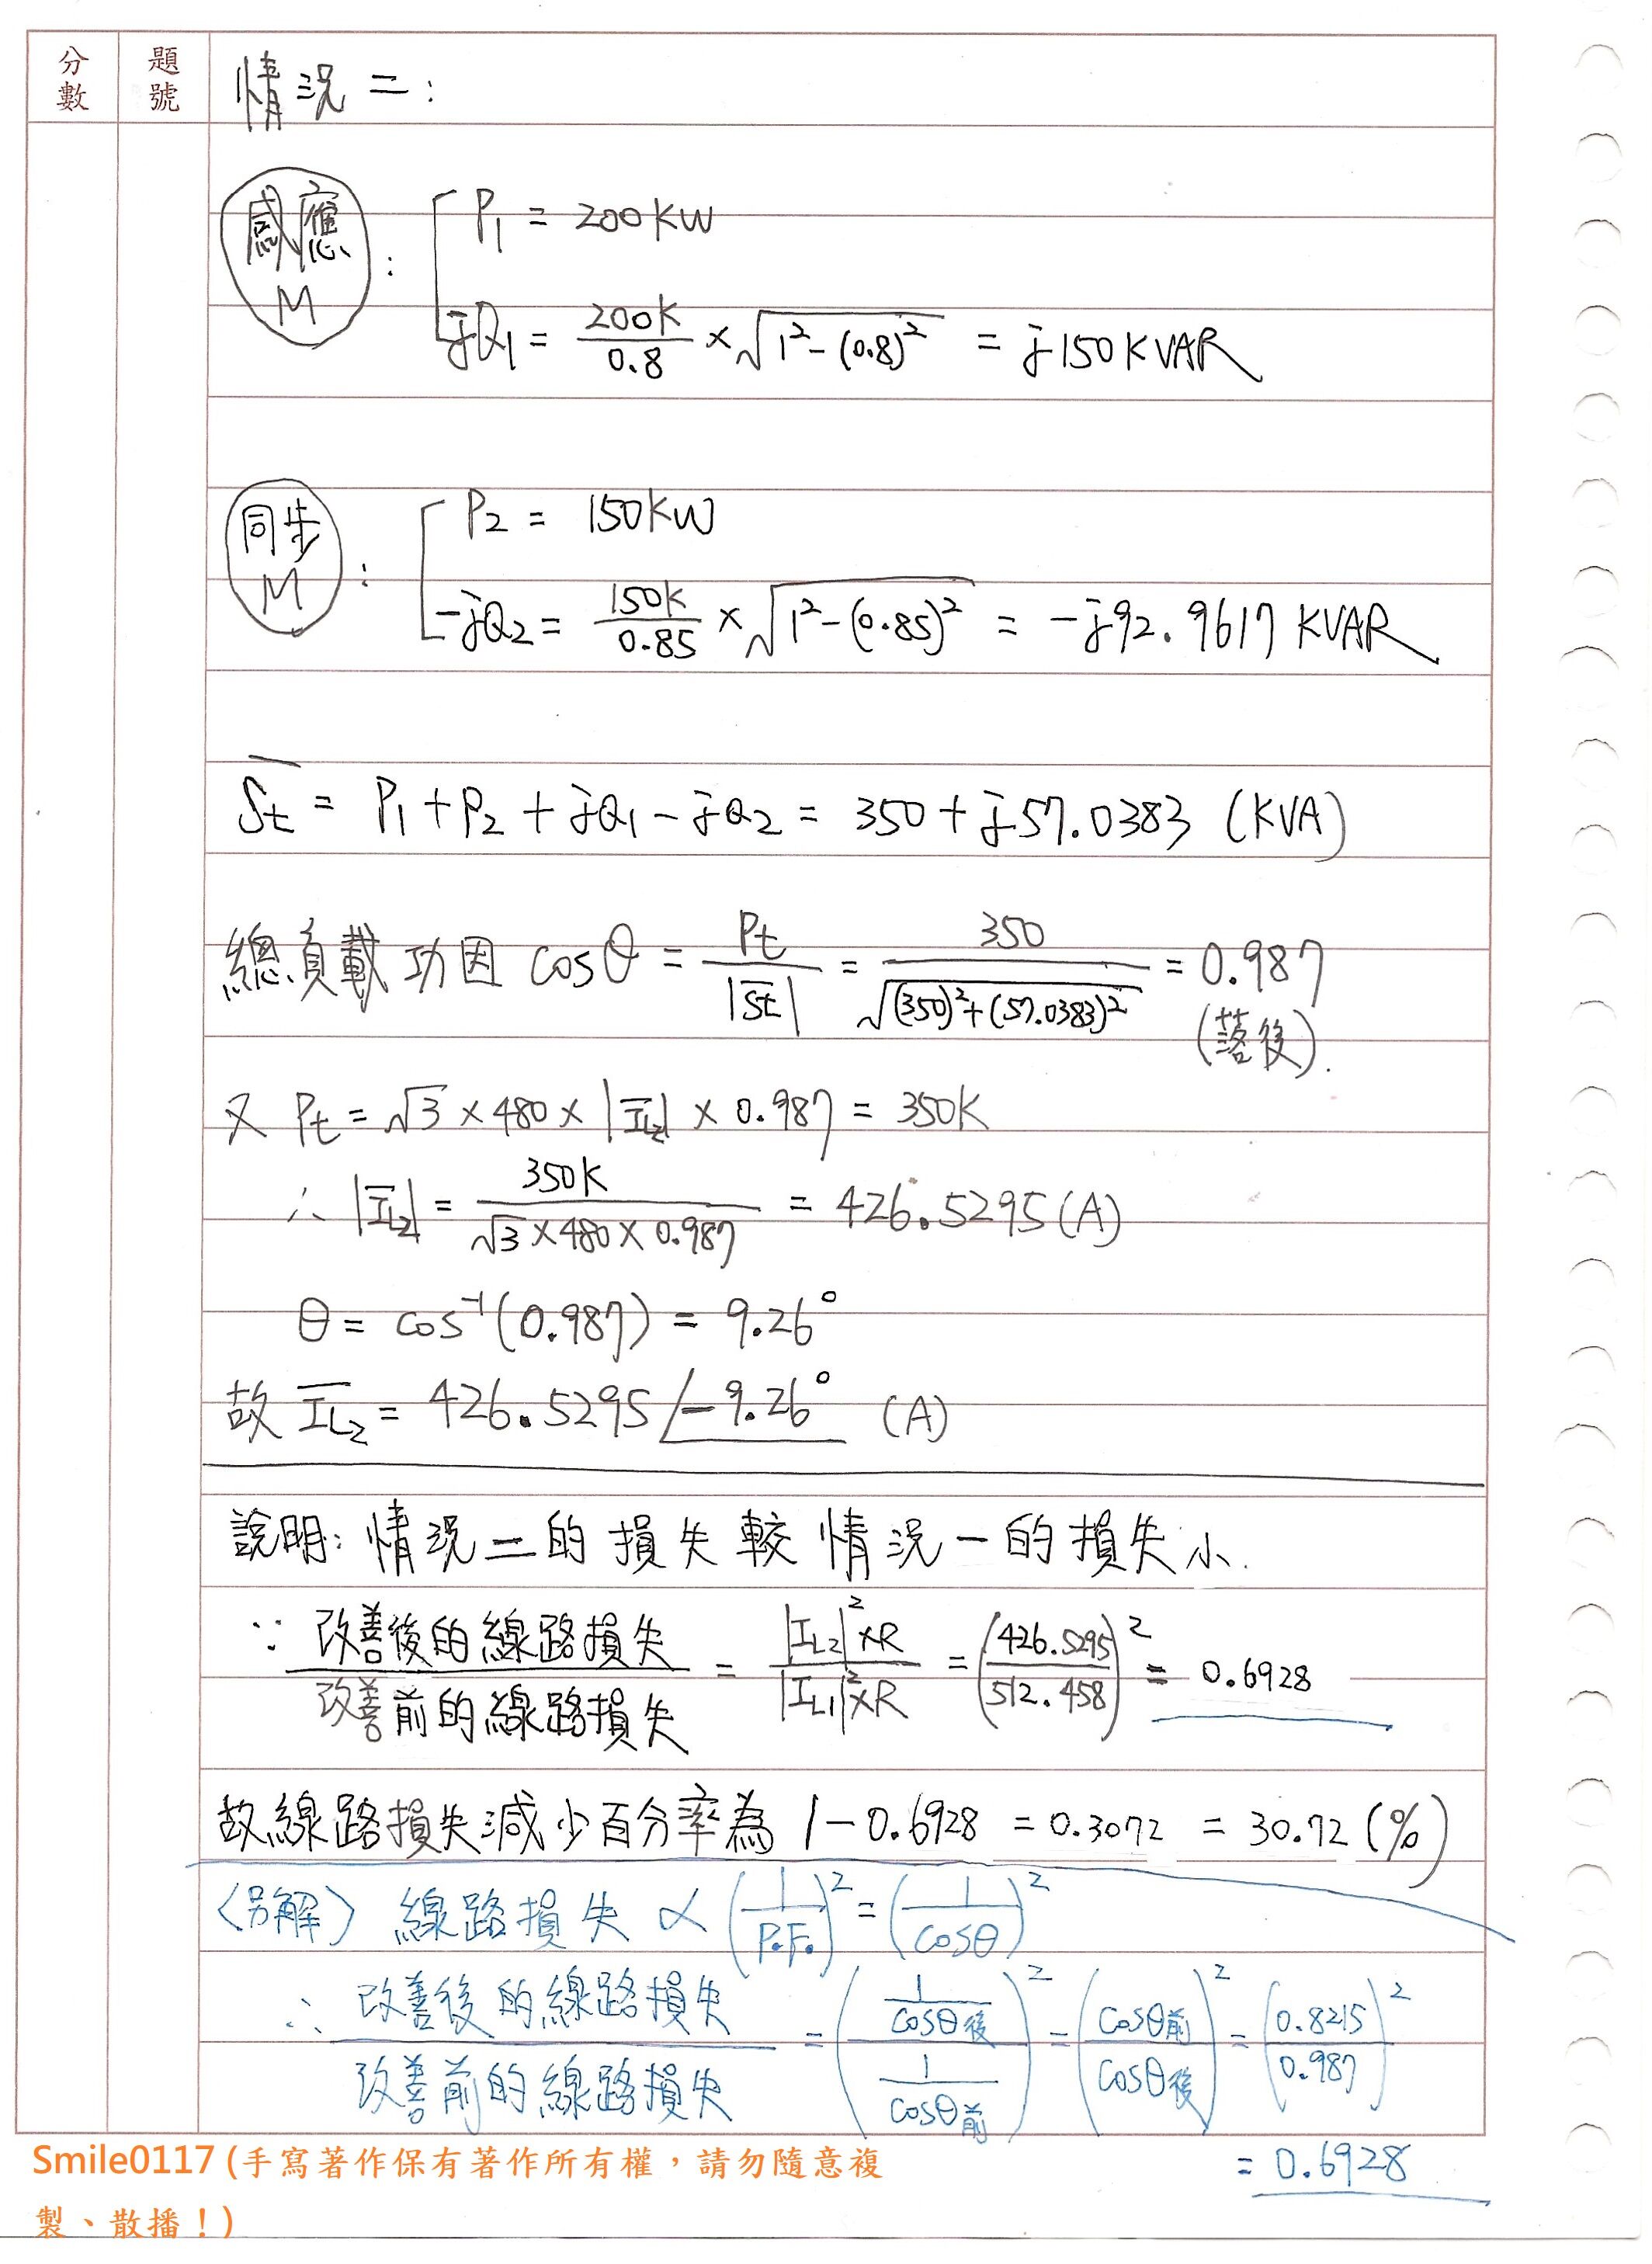 分數 題號 情況二:
感應M : P₁ = 200KW
jQ₁ = 200K/0.8 × √(1²-(0.8)²) = j150KVAR
同步M : P₂ = 150KW
-jQ₂ = 150K/0.85 × √(1²-(0.85)²) = -j92.9617 KVAR
S̅t = P₁+P₂+jQ₁-jQ₂ = 350+j57.0383 (KVA)
總負載功因 cosθ = Pt/|S̅t| = 350/√((350)²+(57.0383)²) = 0.987
(落後).
又 Pt = √3 × 480 × |I̅L₂| × 0.987 = 350K
∴ |I̅L₂| = 350K/(√3×480×0.987) = 426.5295(A)
θ = cos⁻¹(0.987) = 9.26°
故 I̅L₂ = 426.5295∠-9.26° (A)
說明: 情況二的損失較情況一的損失小.
∵ 改善後的線路損失/改善前的線路損失 = |IL₂|²×R/|IL₁|²×R = (426.5295/512.458)² = 0.6928
故線路損失減少百分率為 1-0.6928 = 0.3072 = 30.72(%)
〈另解〉 線路損失 ∝ (1/P.F.)² = (1/cosθ)²
∴ 改善後的線路損失/改善前的線路損失 = ((1/cosθ後)/(1/cosθ前))² = (cosθ前/cosθ後)² = (0.8215/0.987)²
= 0.6928
Smile0117 (手寫著作保有著作所有權，請勿隨意複
製、散播！)